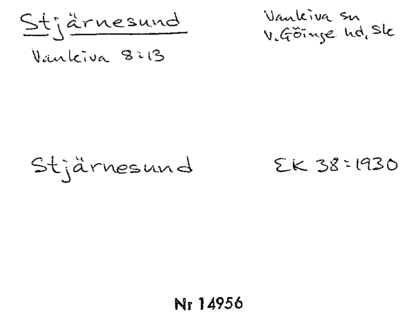 Stjärnesund
Vankiva sn
v. Göinge hd, Sk
Vankiva 8:13
Stjärnesund
EK 38:1930
Nr 14956